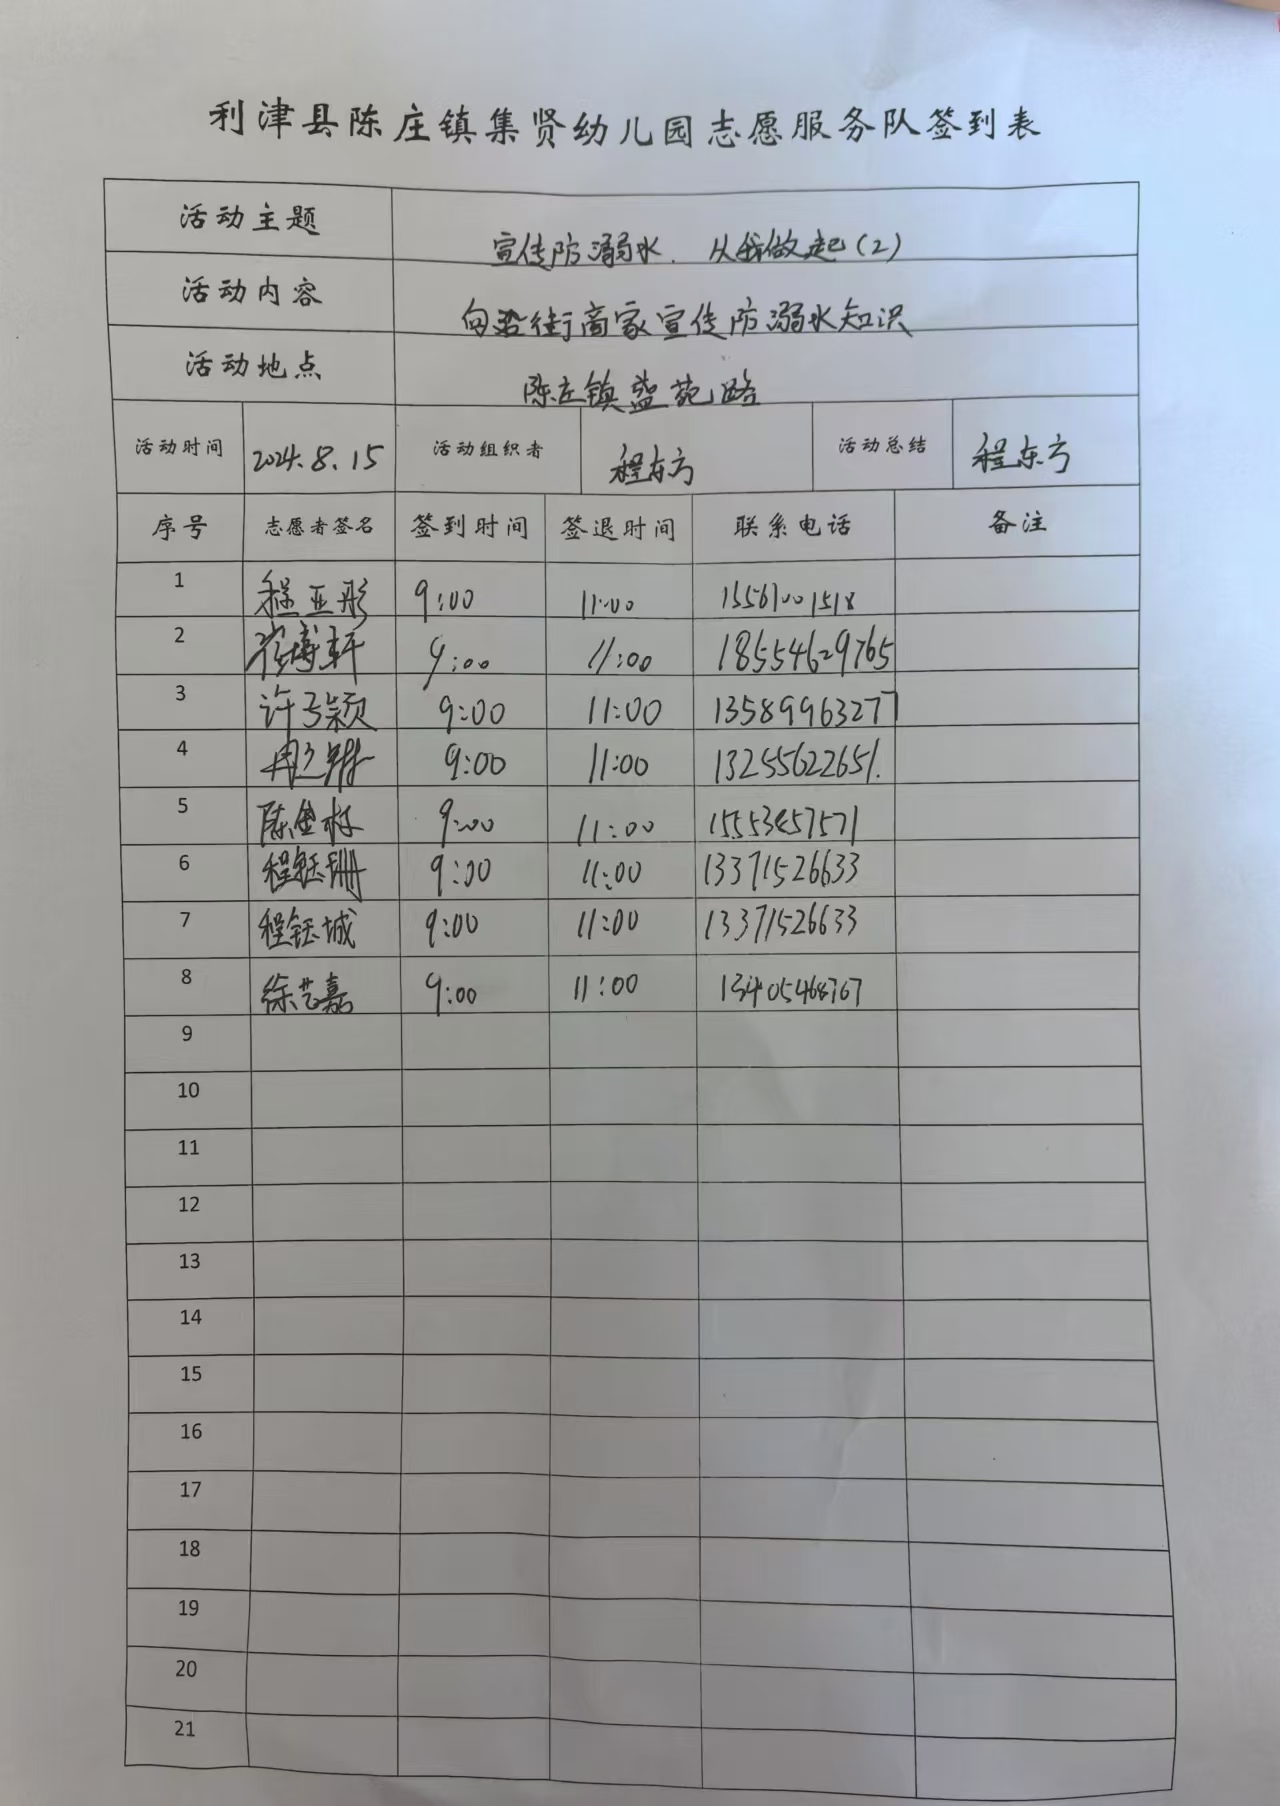 利津县陈庄镇集贤幼儿园志愿服务队签到表
活动主题 宣传防溺水. 从我做起(2)
活动内容 向沿街商家宣传防溺水知识
活动地点 陈庄镇盐苑路
活动时间 2024.8.15 活动组织者 程东方 活动总结 程东方
序号 志愿者签名 签到时间 签退时间 联系电话 备注
1 程亚彤 9:00 11:00 15561001518
2 崔博轩 9:00 11:00 18554629765
3 许弓颖 9:00 11:00 13589963277
4 9:00 11:00 13255622651.
5 9:00 11:00
6 程钰珊 9:00 11:00 13371526633
7 程钰城 9:00 11:00 13371526633
8 徐艺嘉 9:00 11:00 13405468767
9
10
11
12
13
14
15
16
17
18
19
20
21